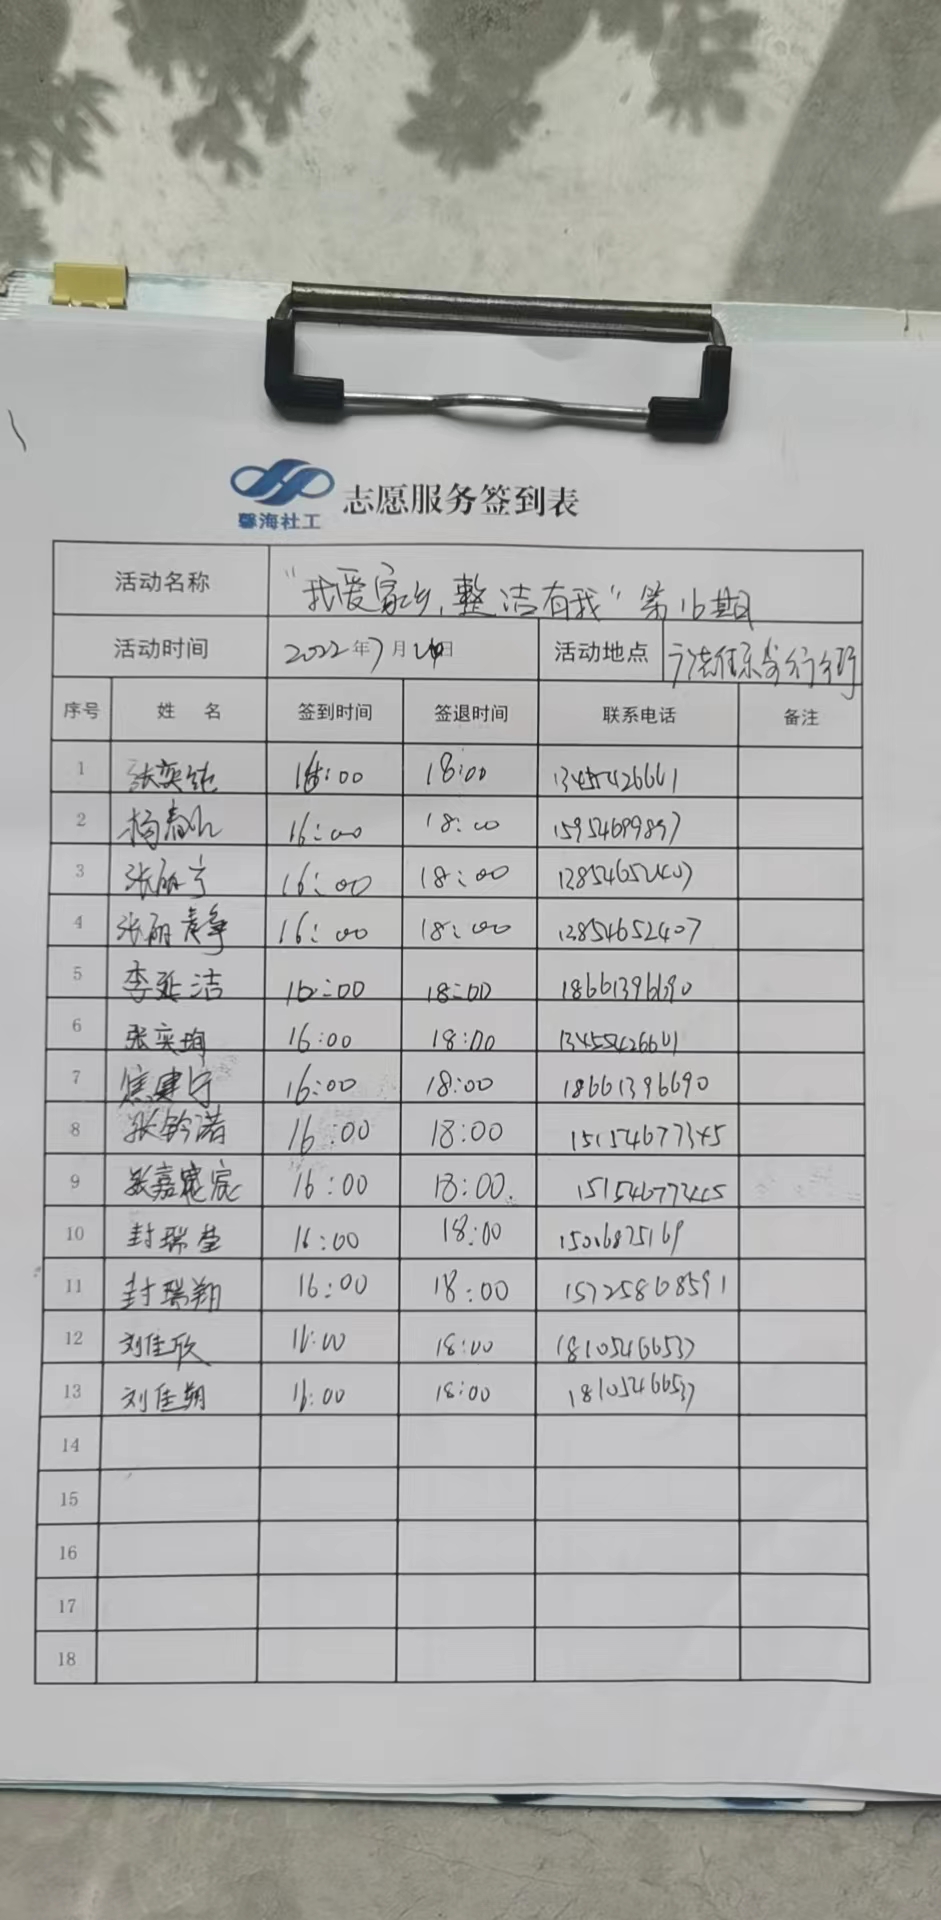 馨海社工 志愿服务签到表
活动名称 "我爱家乡,整洁有我"第16期
活动时间 2022年7月 日 活动地点
序号 姓 名 签到时间 签退时间 联系电话 备注
1 张奕纯 16:00 18:00 13455426661
2 杨春 16:00 18:00
3 张丽宁 16:00 18:00
4 张丽静 16:00 18:00 13854652407
5 李延洁 16:00 18:00 18661396690
6 张奕珣 16:00 18:00 13455426661
7 焦建宁 16:00 18:00 18661396690
8 张钤诺 16:00 18:00 15154677345
9 张嘉宸 16:00 18:00
10 封瑞莹 16:00 18:00
11 封瑞翔 16:00 18:00 15725868591
12 刘佳欣 16:00 18:00 18105466537
13 刘佳翔 16:00 18:00 18105466537
14
15
16
17
18